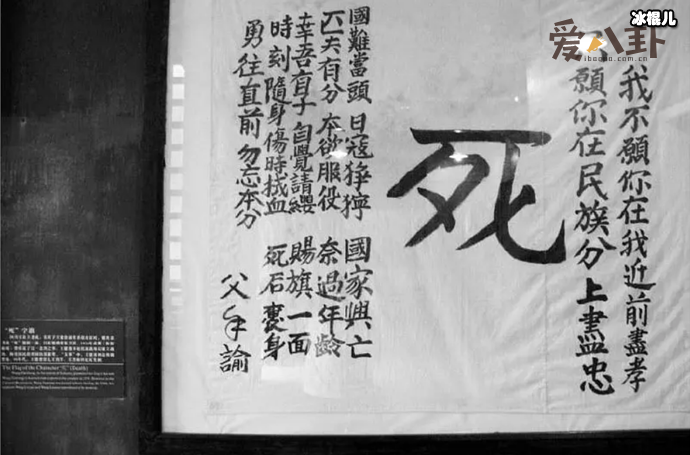 冰棍儿
爱八卦
我不願你在我近前盡孝
願你在民族分上盡忠
死
國難當頭 日寇猙獰 國家興亡
匹夫有分 本欲服役 奈過年齡
幸吾有子 自覺請纓 賜旗一面
時刻隨身 傷時拭血 死后裹身
勇往直前 勿忘本分
父手諭
"死"字旗
The Flag of the Character "死" (Death)